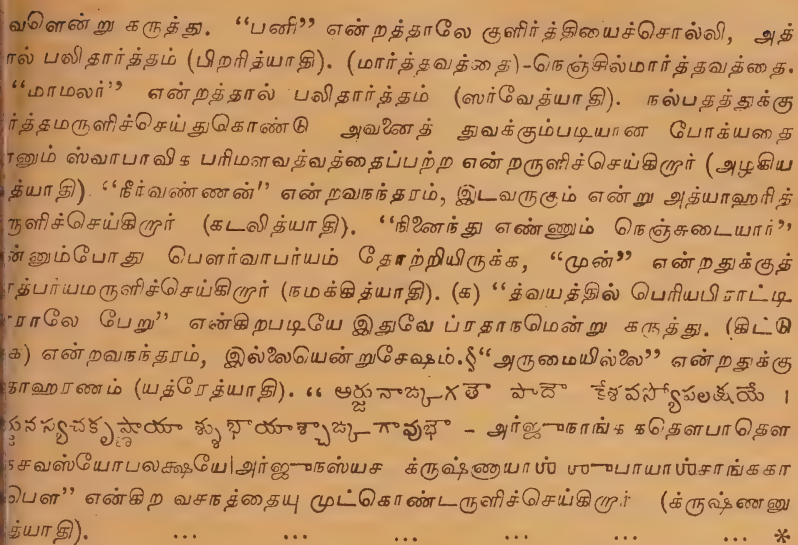 வளென்று கருத்து. “பனி” என்றத்தாலே குளிர்த்தியைச்சொல்லி, அத்
ால் பலிதார்த்தம் (பிறரித்யாதி). (மார்த்தவத்தை)-நெஞ்சில்மார்த்தவத்தை.
“மாமலர்” என்றத்தால் பலிதார்த்தம் (ஸர்வேத்யாதி). நல்பதத்துக்கு
ர்த்தமருளிச்செய்துகொண்டு அவனைத் துவக்கும்படியான போக்யதை
ானும் ஸ்வாபாவிக பரிமளவத்வத்தைப்பற்ற என்றருளிச்செய்கிறார் (அழகிய
த்யாதி). “நீர்வண்ணன்” என்றவநந்தரம், இடவருகும் என்று அத்யாஹரித்
ருளிச்செய்கிறார் (கடலித்யாதி). “நினைந்து எண்ணும் நெஞ்சுடையார்”
ன்னும்போது பௌர்வாபர்யம் தோற்றியிருக்க, “முன்” என்றதுக்குத்
ாத்பர்யமருளிச்செய்கிறார் (நமக்கித்யாதி). (க) “த்வயத்தில் பெரியபிராட்டி
ாராலே பேறு” என்கிறபடியே இதுவே ப்ரதாநமென்று கருத்து. (கிட்டு
க) என்றவநந்தரம், இல்லையென்றுசேஷம்.§“அருமையில்லை” என்றதுக்கு
தாஹரணம் (யத்ரேத்யாதி). “అర్జునాఙ్కగతౌ పాదౌ కేశవస్యోపలక్షయే ।
ర్జునస్యచకృష్ణాయా శ్శుభాయాశ్చాఙ్కగావుభౌ – அர்ஜுநாங்க கதௌபாதௌ
கசவஸ்யோபலக்ஷயே|அர்ஜுநஸ்யச க்ருஷ்ணாயாஶ் ஶுபாயாஶ்சாங்ககா
பௌ” என்கிற வசநத்தையு முட்கொண்டருளிச்செய்கிறார் (க்ருஷ்ணனு
த்யாதி). ... ... ... ... ... ... *